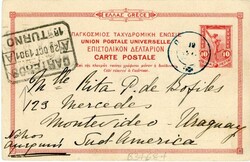 ΕΛΛΑΣ GREECE
ΠΑΓΚΟΣΜΙΟΣ ΤΑΧΥΔΡΟΜΙΚΗ ΕΝΩΣΙΣ
UNION POSTALE UNIVERSELLE
ΕΠΙΣΤΟΛΙΚΟΝ ΔΕΛΤΑΡΙΟΝ
CARTE POSTALE
CARTERO
28 OCT 1901
TURNO
Mlle Rita P. de Bofill
123 Mercedes
Montevideo - Uruguay
Sud America